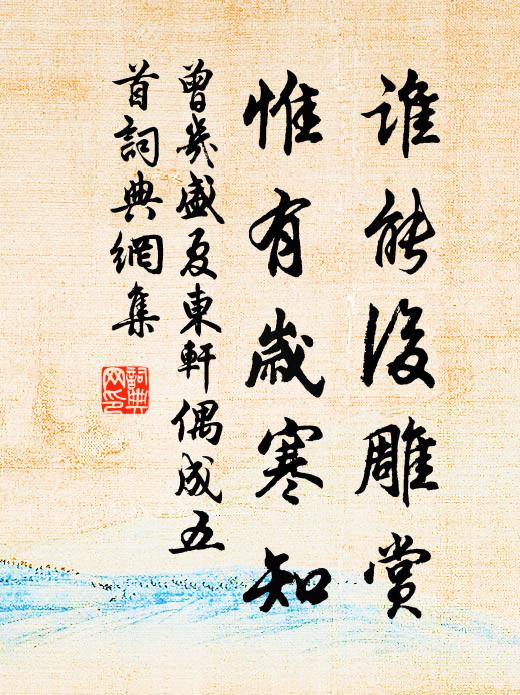 谁能後雕赏
惟有歲寒知
曾幾盛夏東軒偶成五
首詞典網集
詞典
网印